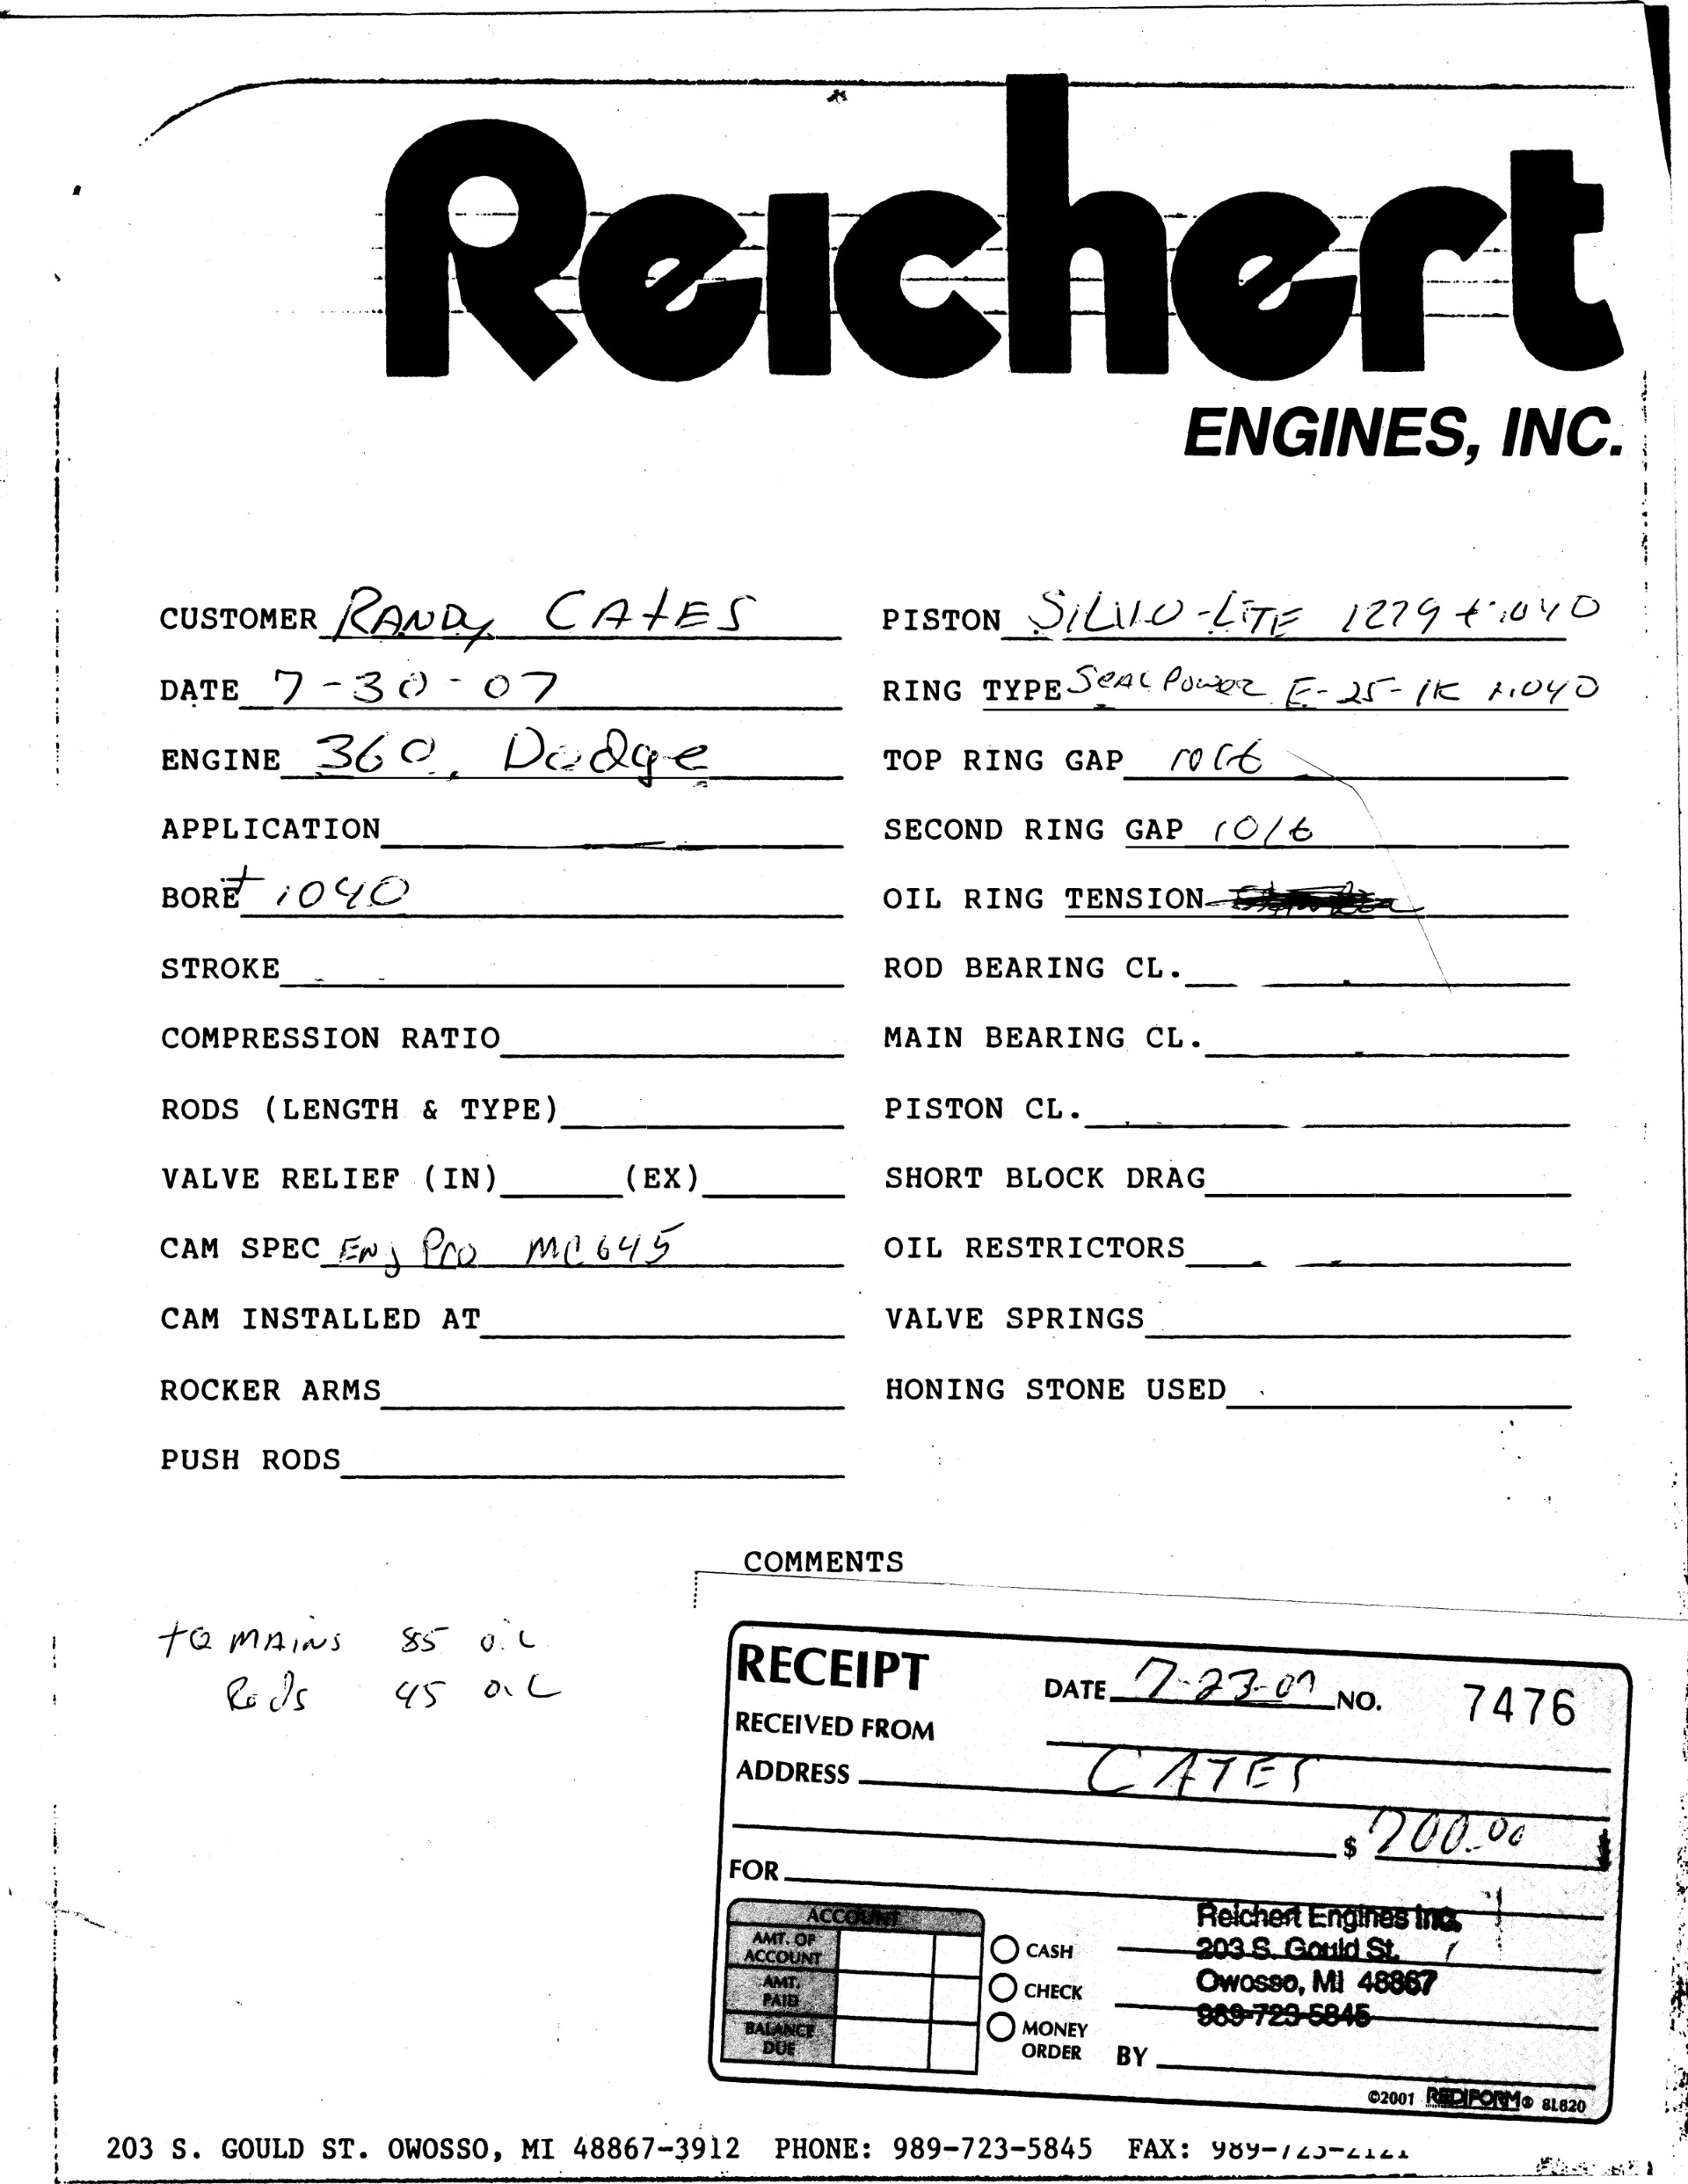 Reichert
ENGINES, INC.
CUSTOMER RANDY CATES
DATE 7-30-07
ENGINE 360, Dodge
APPLICATION
BORE + .040
STROKE
COMPRESSION RATIO
RODS (LENGTH & TYPE)
VALVE RELIEF (IN) (EX)
CAM SPEC Eng Pro MC645
CAM INSTALLED AT
ROCKER ARMS
PUSH RODS
PISTON SILVO-LITE 1279 +.040
RING TYPE SEAL POWER E-25-1K +.040
TOP RING GAP .016
SECOND RING GAP .016
OIL RING TENSION
ROD BEARING CL.
MAIN BEARING CL.
PISTON CL.
SHORT BLOCK DRAG
OIL RESTRICTORS
VALVE SPRINGS
HONING STONE USED
COMMENTS
TQ MAINS 85 OIL
Rods 45 OIL
RECEIPT
DATE 7-23-07 NO. 7476
RECEIVED FROM
ADDRESS CATES
$ 700.00
FOR
ACCOUNT
AMT. OF
ACCOUNT
AMT.
PAID
BALANCE
DUE
CASH
CHECK
MONEY
ORDER
Reichert Engines Inc.
203 S. Gould St.
Owosso, MI 48867
989-723-5845
BY
©2001 REDIFORM® 8L820
203 S. GOULD ST. OWOSSO, MI 48867-3912 PHONE: 989-723-5845 FAX: